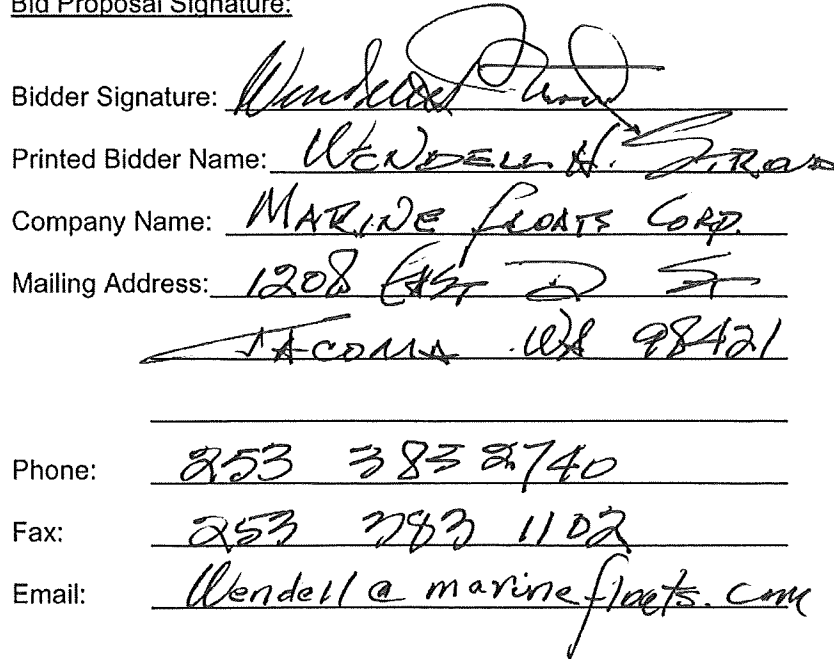 Bid Proposal Signature:
Bidder Signature: Wendell
Printed Bidder Name: WENDELL H. STROUD
Company Name: MARINE FLOATS CORP.
Mailing Address: 1208 EAST D ST
TACOMA WA 98421
Phone: 253 383 2740
Fax: 253 383 1102
Email: Wendell@marinefloats.com